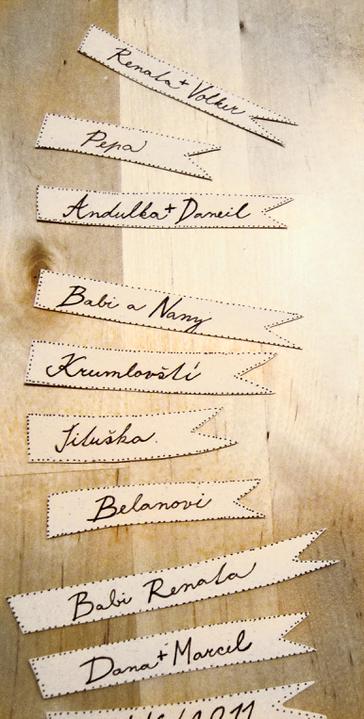 Renata + Volker
Pepa
Andulka + Daneil
Babi a Nany
Krumlovští
Jiluška
Belanovi
Babi Renata
Dana + Marcel
2011